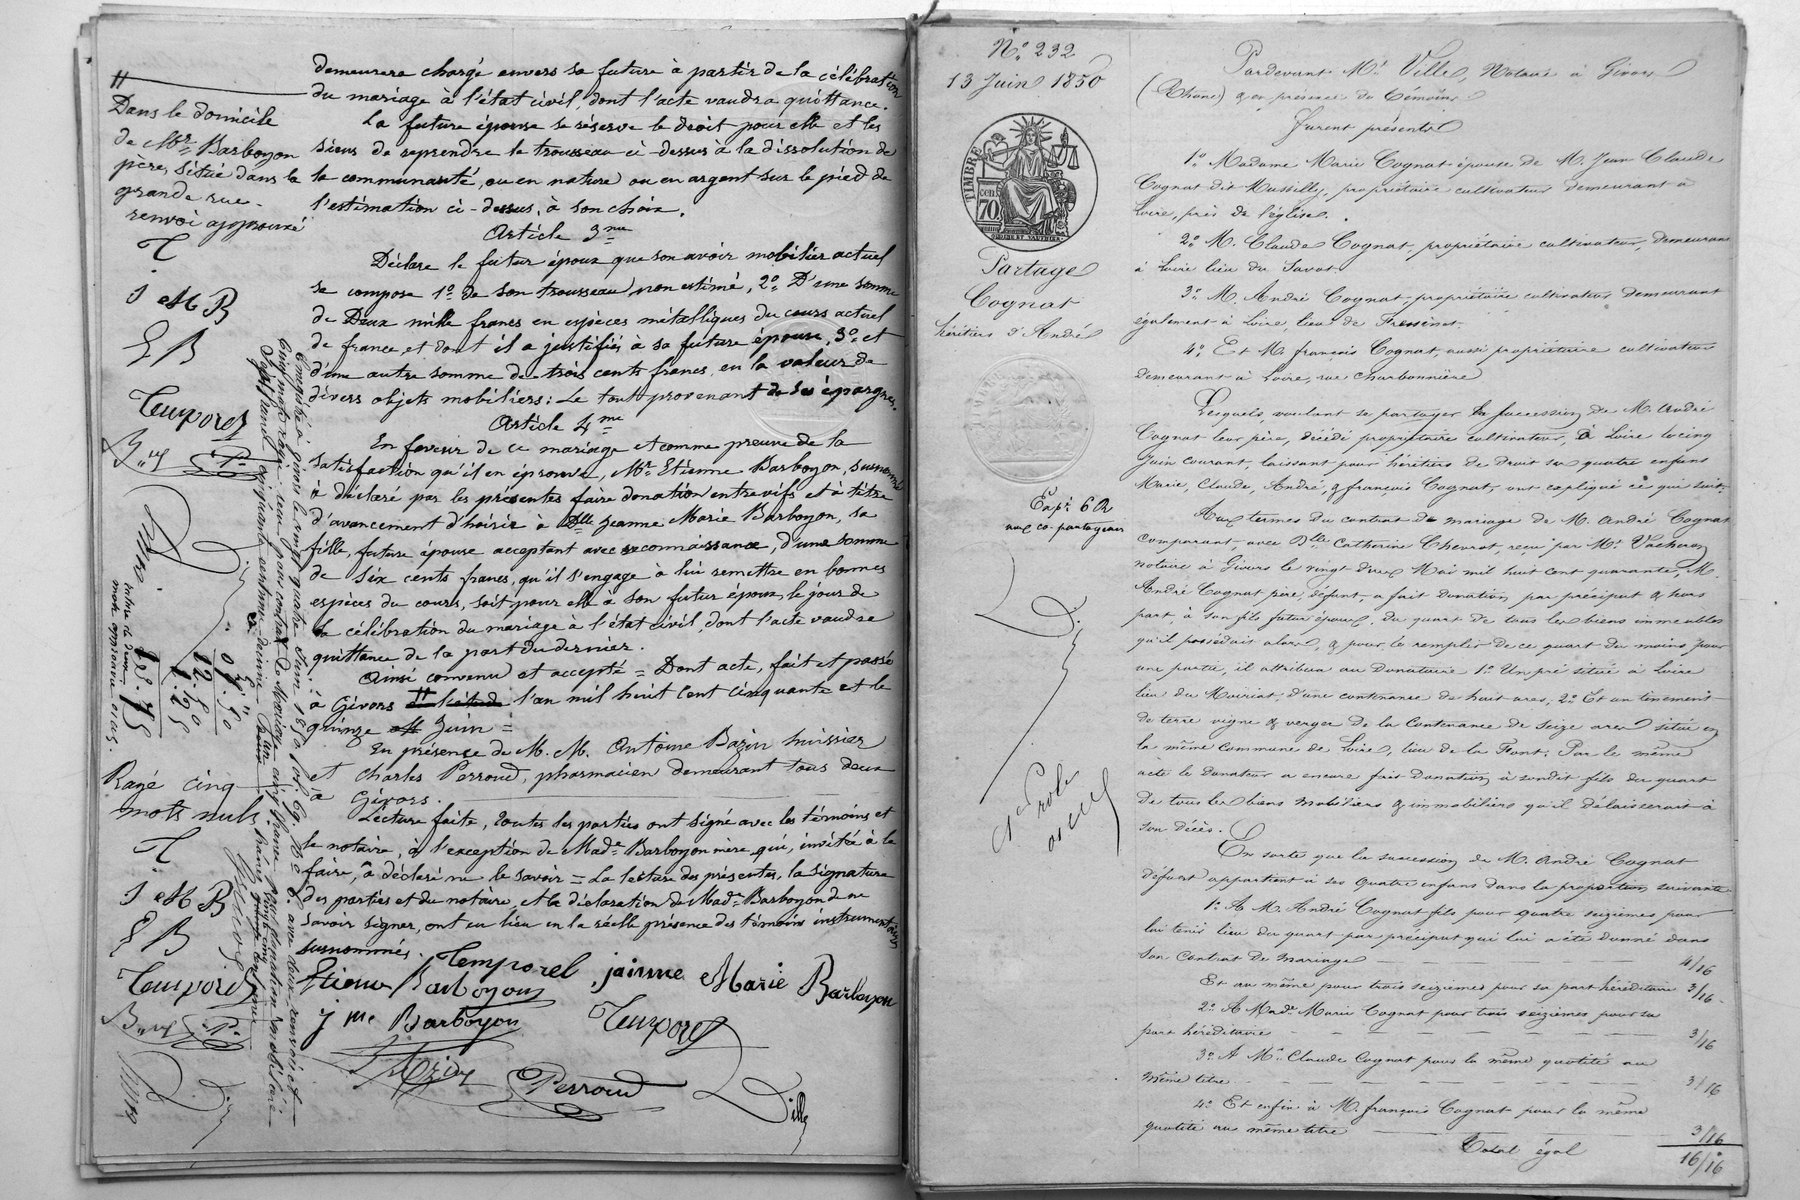 demeurera chargé envers sa future à partir de la célébration
du mariage à l'état civil, dont l'acte vaudra quittance.
La future épouse se réserve le droit pour elle et les
siens de reprendre le trousseau ci-dessus à la dissolution de
la communauté, ou en nature ou en argent sur le pied de
l'estimation ci-dessus, à son choix.
Article 3me
Déclare le futur époux que son avoir mobilier actuel
se compose 1o de son trousseau non estimé, 2o D'une somme
de Deux mille francs en espèces métalliques du cours actuel
de france, et dont il a justifiés à sa future épouse, 3o et
d'une autre somme de trois cents francs, en la valeur de
divers objets mobiliers: Le tout provenant de ses épargnes.
Article 4me
En faveur de ce mariage et comme preuve de la
satisfaction qu'il en éprouve, Mr Etienne Barboyon, susnommé
à déclaré par les présentes faire donation entrevifs et à titre
d'avancement d'hoirie à Dlle Jeanne Marie Barboyon, sa
fille, future épouse acceptant avec reconnaissance, d'une somme
de six cents francs, qu'il s'engage à lui remettre en bonnes
espèces du cours, soit pour elle à son futur époux, le jour de
la célébration du mariage à l'état civil, dont l'acte vaudra
quittance de la part du dernier.
Ainsi convenu et accepté = Dont acte, fait et passé
à Givors l'an mil huit cent cinquante et le
quinze Juin =
En présence de M. M. Antoine Bazin huissier
et Charles Perroud, pharmacien demeurant tous deux
à Givors.
Lecture faite, toutes les parties ont signé avec les témoins et
le notaire, à l'exception de Made Barboyon mère qui, invitée à le
faire, à déclaré ne le savoir = La lecture des présentes, la signature
des parties et du notaire, et la déclaration de Made Barboyon de ne
savoir signer, ont eu lieu en la réelle présence des témoins instrumentaires
susnommés.
Temporel jainne Marie Barboyon
Etienne Barboyon
J me Barboyon Temporel
Bazin Perroud Ville
Dans le domicile
de Mr Barboyon
père, située dans la
grande rue.
renvoi approuvé
T.
J M B
E B
Temporel
P.
Rayé cinq
mots nuls
T.
J M B
E B
Temporel
P.
No 232
13 Juin 1850
TIMBRE
70
cen.
Partage
Cognat
héritiers d'André
Expn 6 R
aux co-partageans
Pardevant Me Ville, Notaire à Givors
(Rhône) & en présence de témoins
Furent présents
1o Madame Marie Cognat épouse de M. Jean Claude
Cognat dit Massilly, propriétaire cultivateur demeurant à
Loire, près de l'église.
2o M. Claude Cognat, propriétaire cultivateur, demeurant
à Loire lieu du Savot
3o M. André Cognat, propriétaire cultivateur demeurant
également à Loire, lieu de Fressinet
4o Et M. françois Cognat, aussi propriétaire cultivateur
demeurant à Loire, rue charbonnière
Lesquels, voulant se partager la succession de M. André
Cognat leur père, décédé propriétaire cultivateur, à Loire le cinq
Juin courant, laissant pour héritiers de droit ses quatre enfans
Marie, Claude, André, & françois Cognat, ont expliqué ce qui suit:
Aux termes du contrat de mariage de M. André Cognat
comparant, avec Dlle Catherine Chevrot, reçu par Me Vacheron
notaire à Givors le vingt deux Mai mil huit cent quarante, M.
André Cognat père, défunt, a fait donation, par préciput & hors
part, à son fils futur époux, du quart de tous les biens immeubles
qu'il possédait alors, & pour le remplir de ce quart du moins pour
une partie, il attribua au Donataire 1o Un pré situé à Loire
lieu du Moiriat, d'une contenance de huit ares, 2o Et un tènement
de terre vigne & verger de la Contenance de seize ares situé en
la même commune de Loire, lieu de la Font. Par le même
acte le donateur a encore fait donation, à sondit fils du quart
de tous les biens mobiliers & immobiliers qu'il délaisserait à
son décès.
En sorte que la succession de M. André Cognat
défunt appartient à ses quatre enfans dans la proportion suivante
1o A M. André Cognat fils pour quatre seizièmes pour
lui tenir lieu du quart par préciput qui lui a été donné dans
son Contrat de mariage 4/16
Et au même pour trois seizièmes pour sa part héréditaire 3/16
2o A Made Marie Cognat pour trois seizièmes pour sa
part héréditaire 3/16
3o A Mr Claude Cognat pour la même quotité au
même titre 3/16
4o Et enfin à M. françois Cognat pour la même
quotité au même titre 3/16
Total égal 16/16